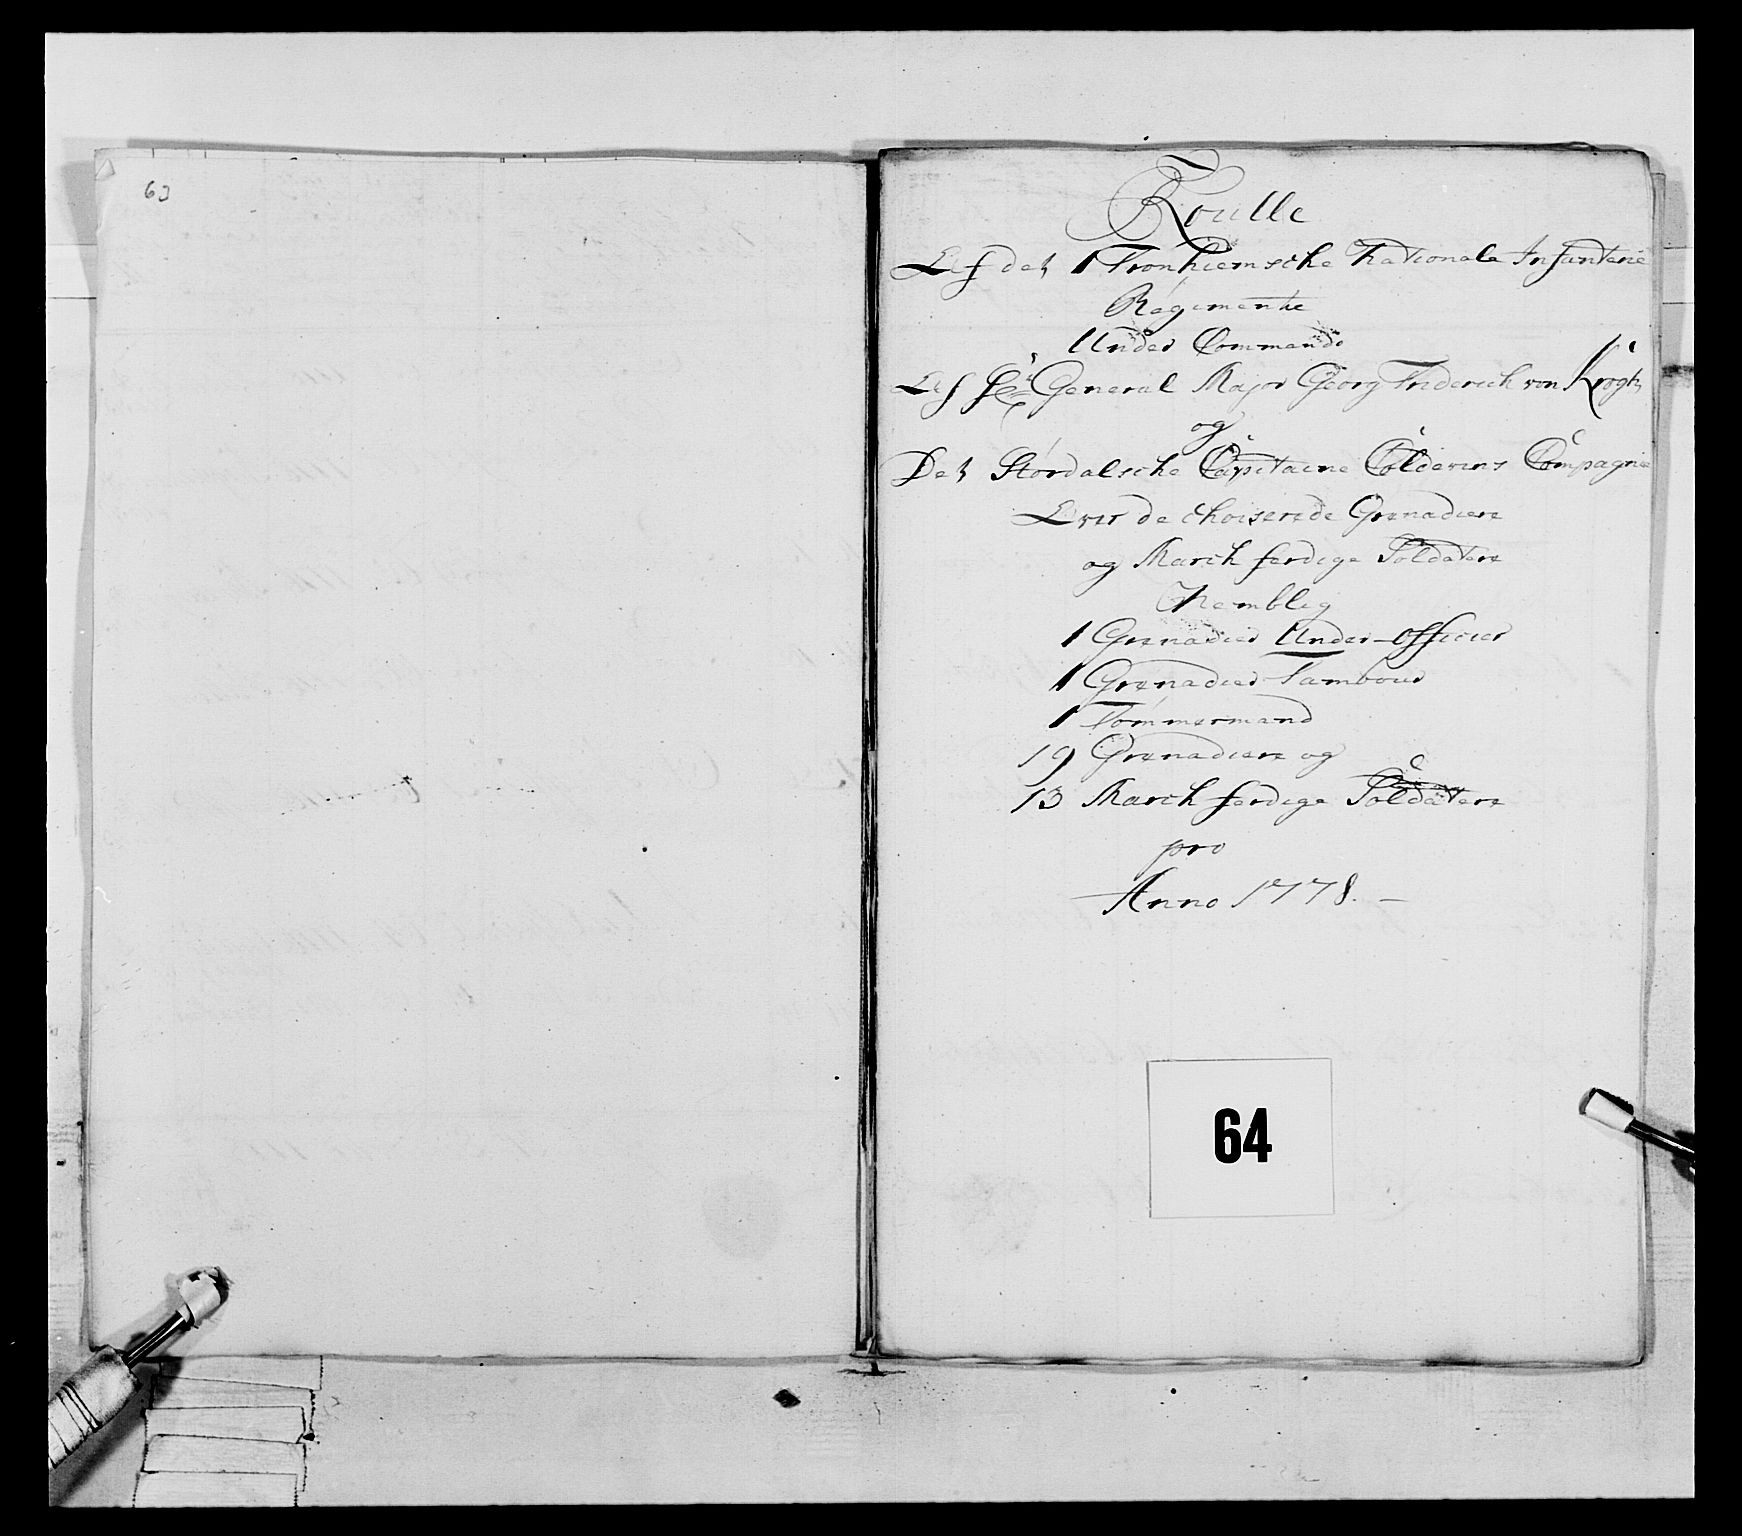 63
Roulle
Af det 1 Tronhiemsche Nationale Infanterie
Regimente
Under Commando
Af Hr General Major Georg Friderich von Krogh
og
Det Stördalsche Capitaine Coldevins Compagnie
Over de choiserede Grenadiere
og March ferdige Soldatere
Nemblig
1 Grenadier Under-officier
1 Grenadier Tambour
1 Tömmermand
19 Grenadiere og
13 March ferdige Soldatere
pro
Anno 1778. –
64